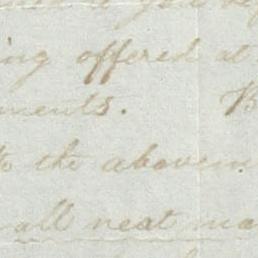 ing offered at
ments. B
to the abovem
all neat ma